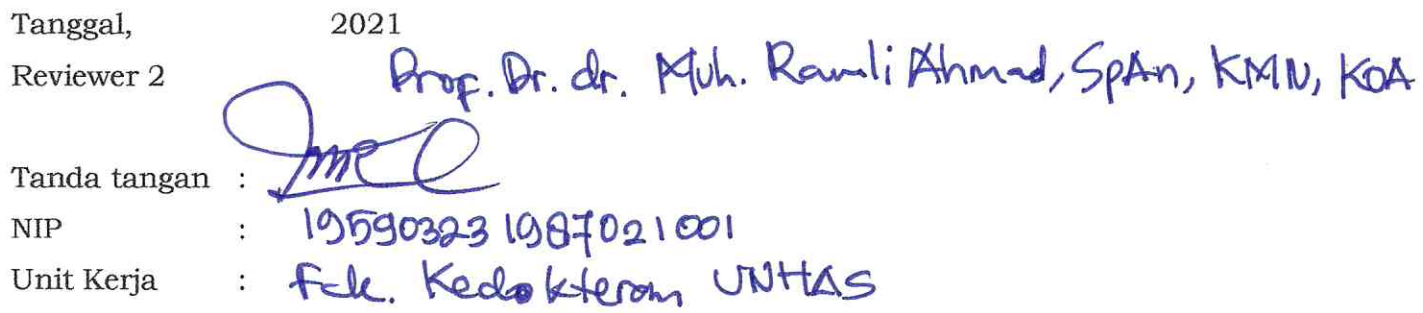 Tanggal, 2021
Reviewer 2 Prof. Dr. dr. Muh. Ramli Ahmad, SpAn, KMN, KOA
Tanda tangan :
NIP : 195903231987021001
Unit Kerja : Fak. Kedokteran UNHAS